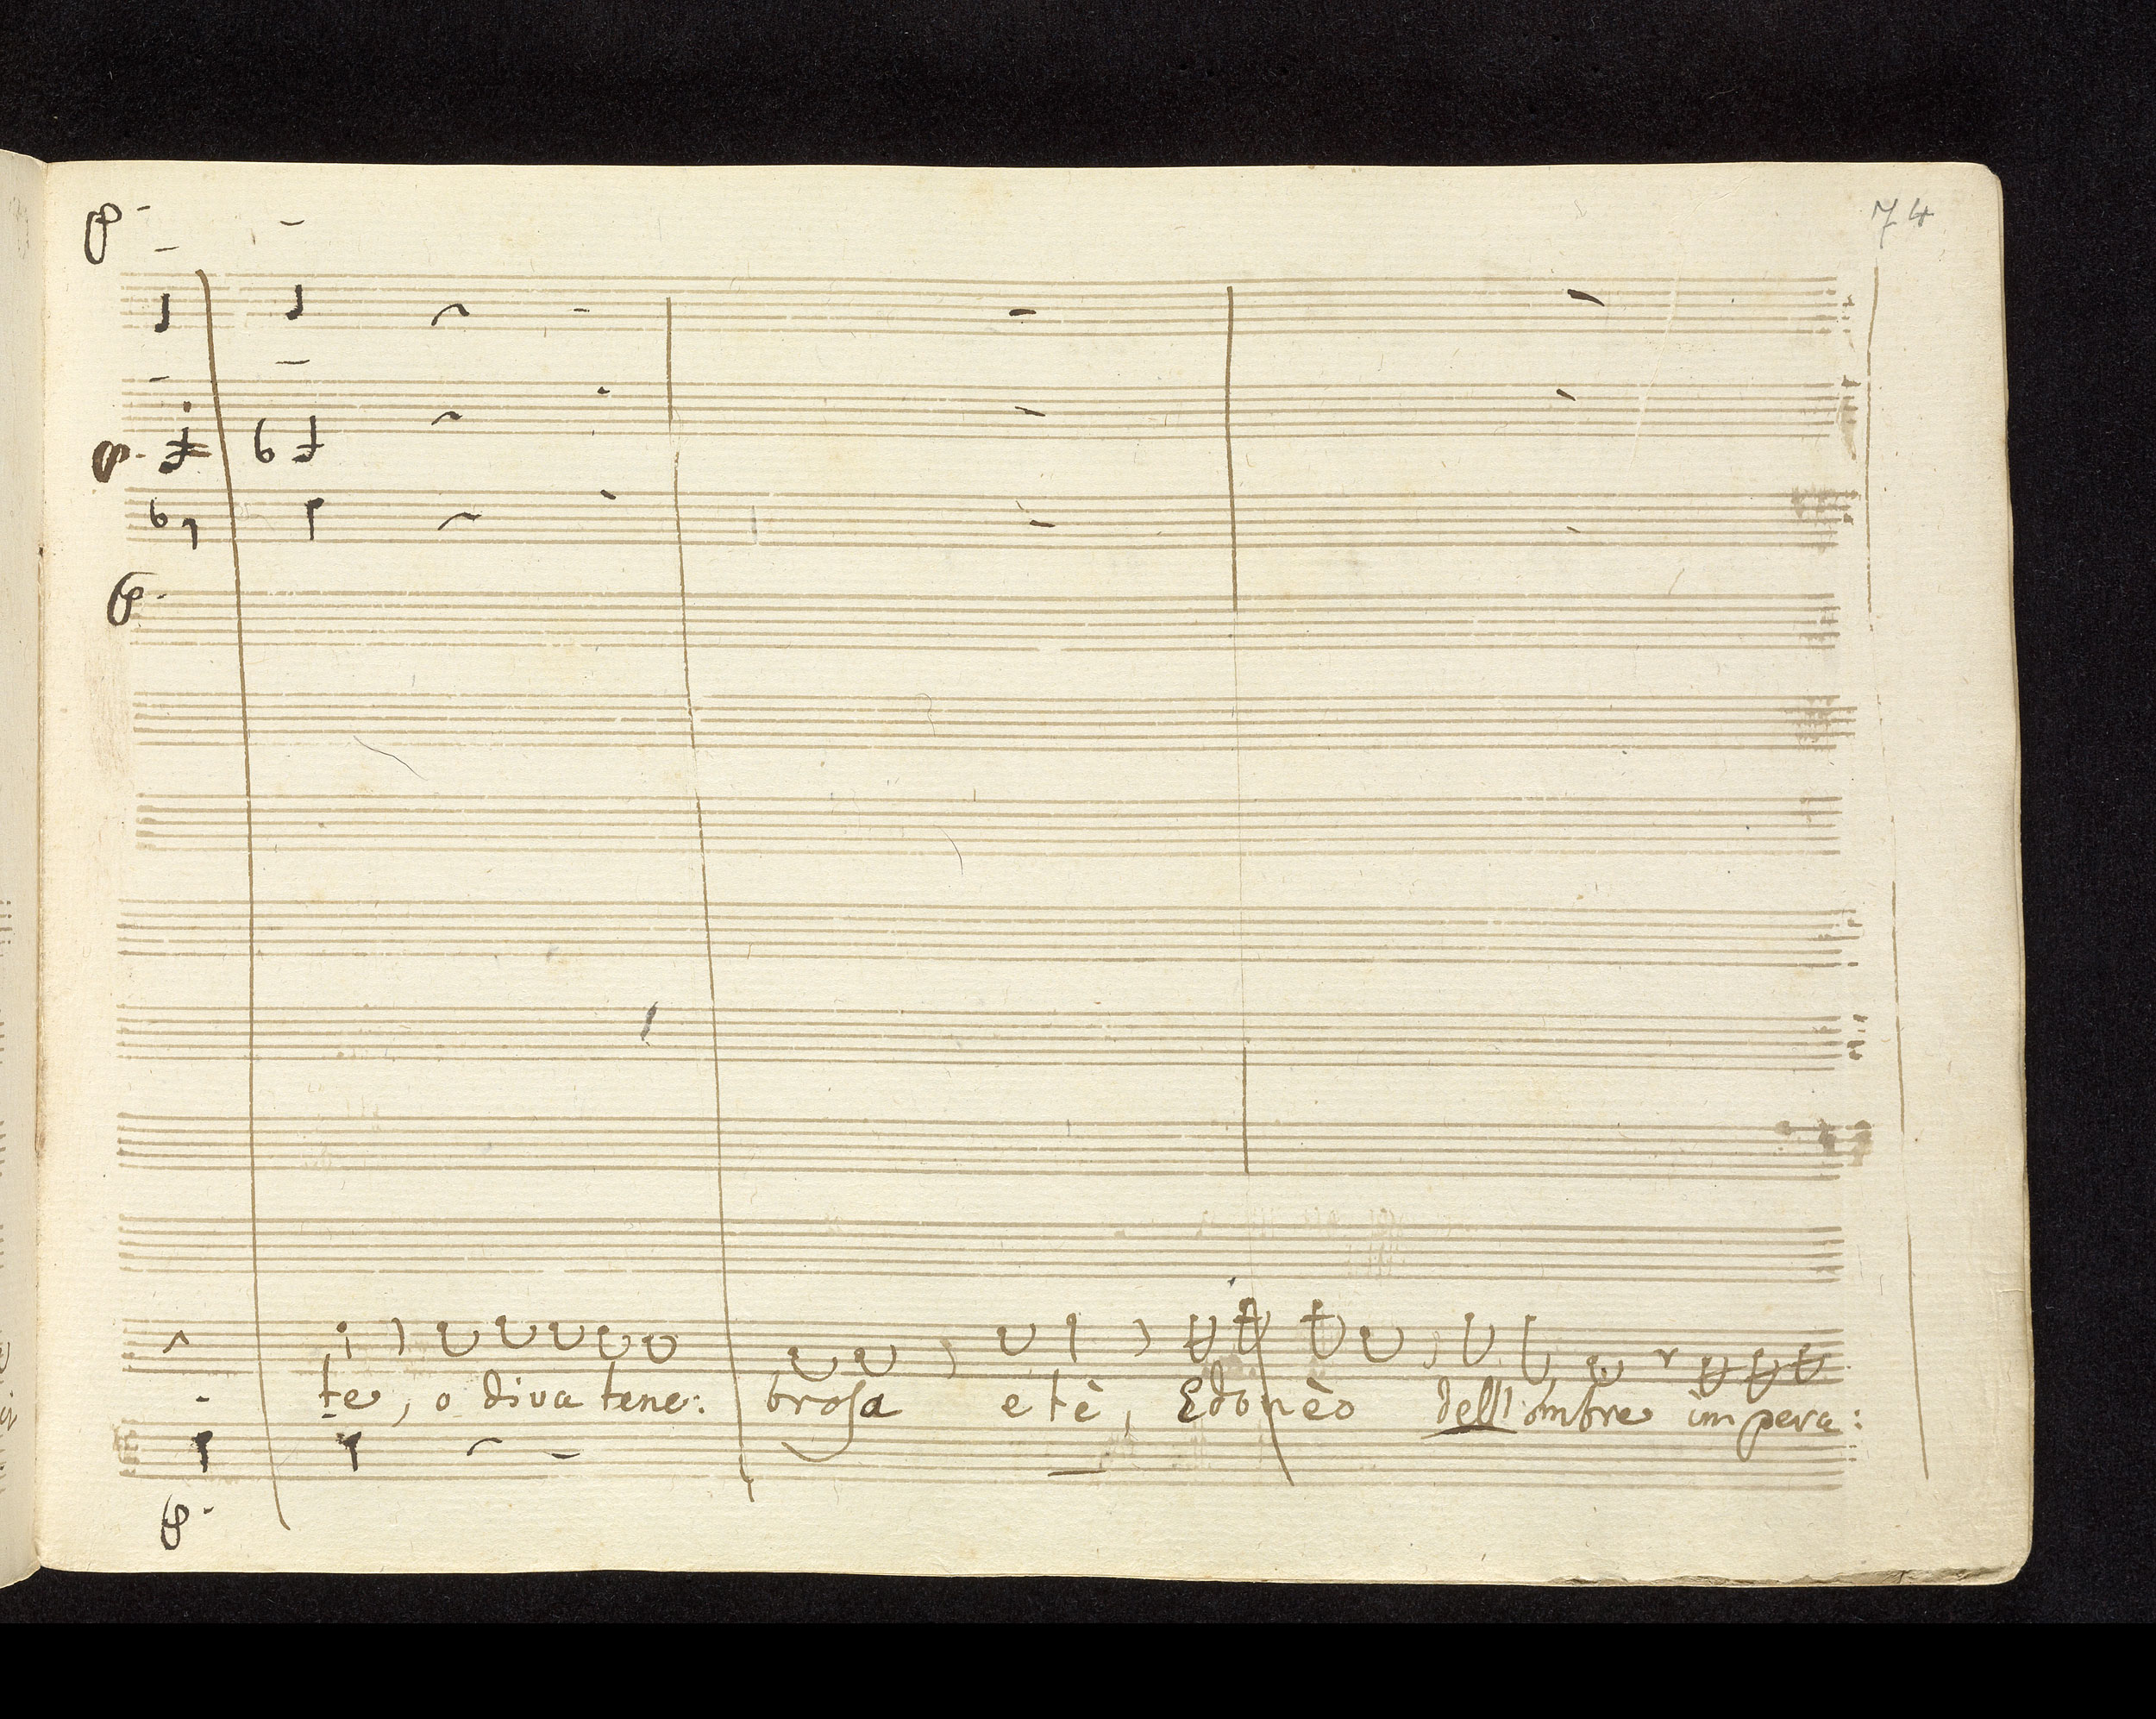 74
p.
p.
p.
te, o diva tene: brosa e tè, Edonèo dell'ombre impera:
p.